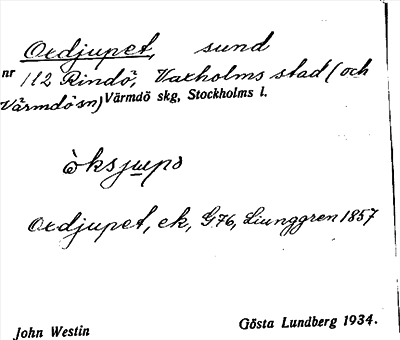 Oxdjupet, sund
nr 112 Rindö, Vaxholms stad (och
Värmdö sn) Värmdö skg, Stockholms l.
òksjupə
Oxdjupet, ek, G. 76, Ljunggren 1857
John Westin
Gösta Lundberg 1934.